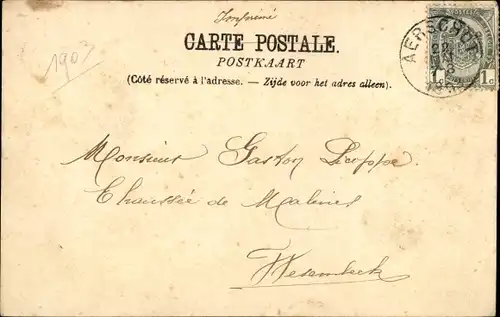 Imprimé
1903
CARTE POSTALE.
POSTKAART
(Côté réservé à l'adresse. — Zijde voor het adres alleen).
AERSCHOT
1c 1c
Monsieur Gaston
Chaussée de Malines
Wesembeek